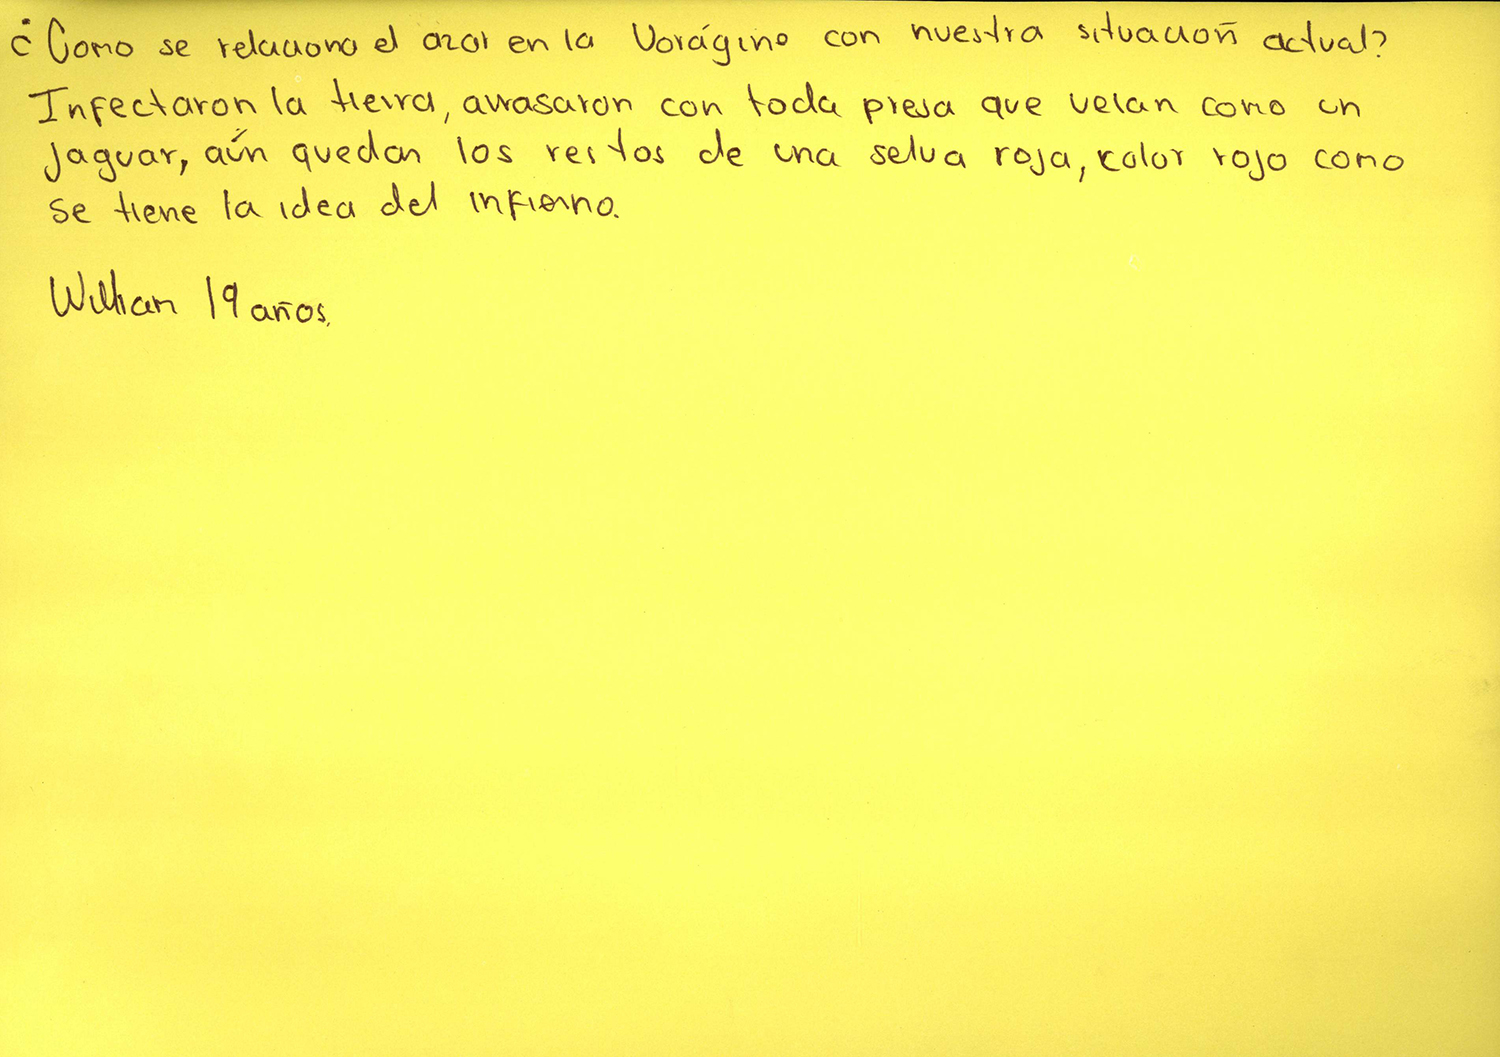 ¿Como se relaciona el azar en la Vorágine con nuestra situación actual?
Infectaron la tierra, arrasaron con toda presa que veían como un
jaguar, aún quedan los restos de una selva roja, color rojo como
se tiene la idea del infierno.
Willian 19 años.